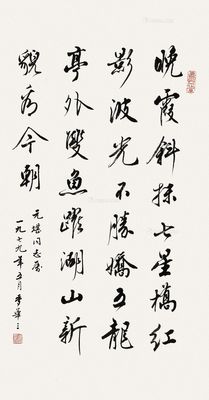 晚霞斜抹七星橋紅
影波光不勝嬌五龍
亭外雙魚躍湖山新
貌看今朝
同志屬
一九七九年五月